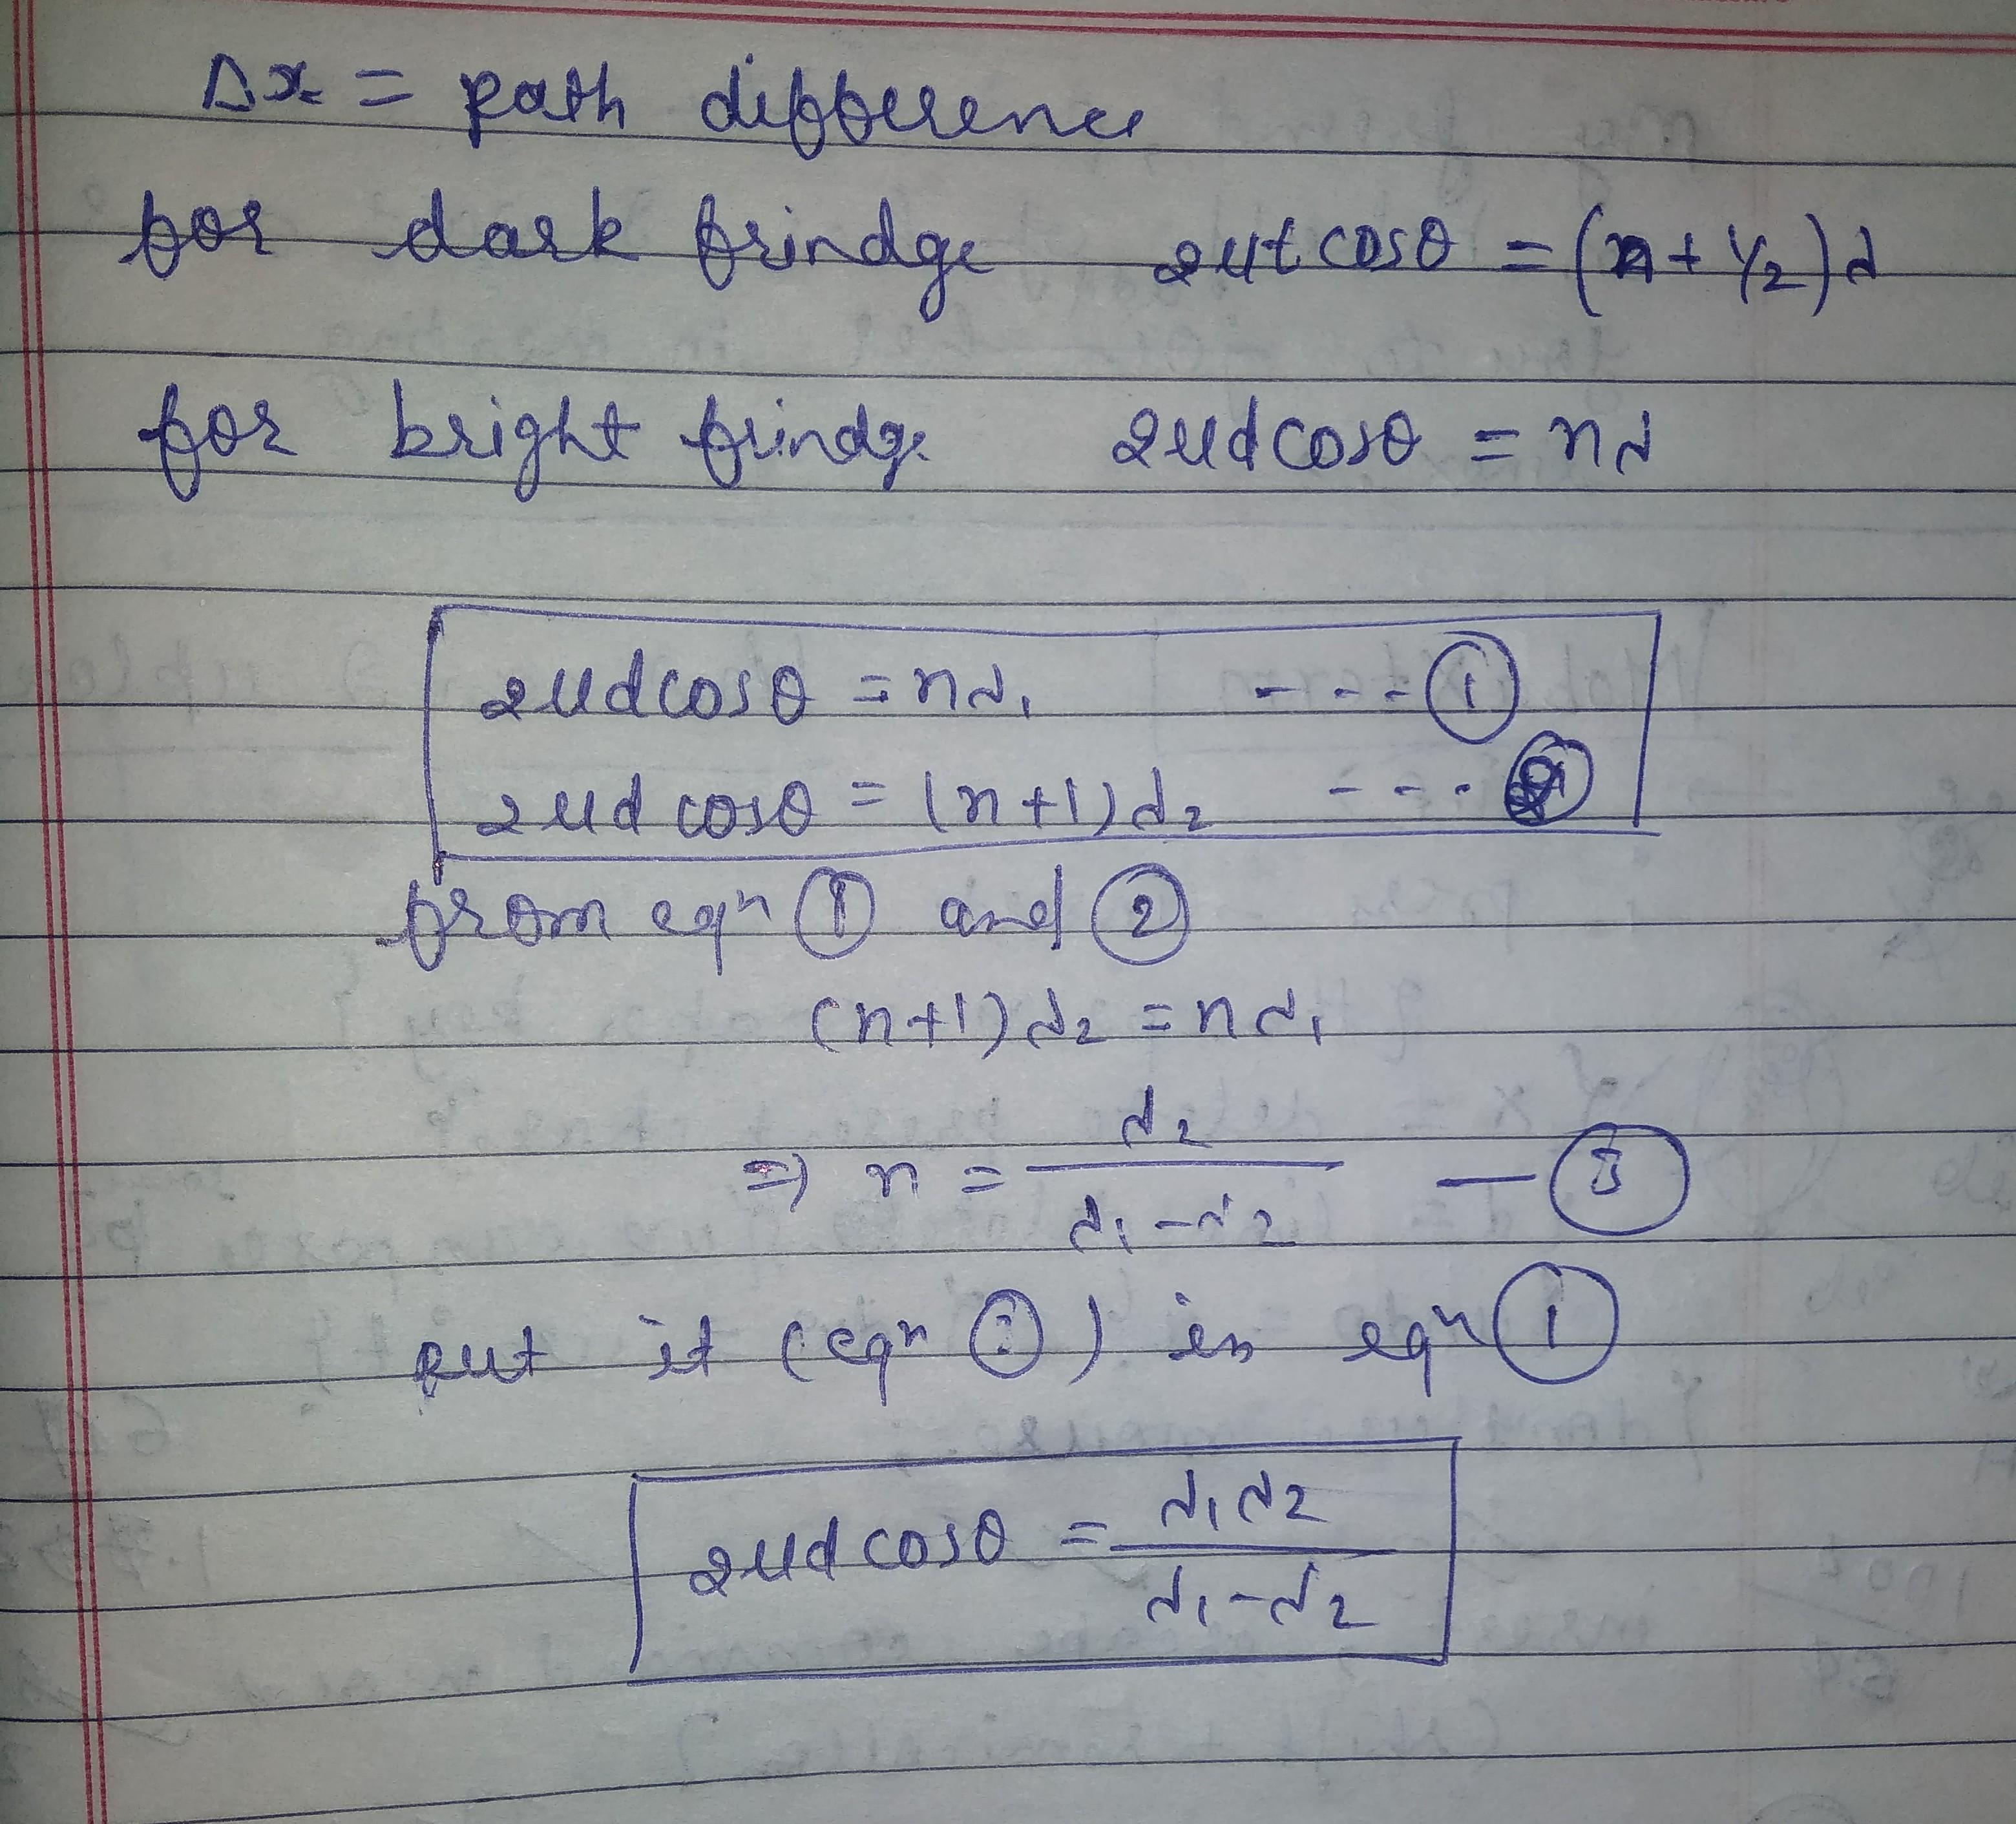 Δx = path difference
for dark frindge 2μt cosθ = (n + 1/2)λ
for bright frindge 2μd cosθ = nλ
2μd cosθ = nλ₁ --- ①
2μd cosθ = (n+1)λ₂ --- ②
from eqⁿ ① and ②
(n+1)λ₂ = nλ₁
⇒ n = λ₂ / λ₁-λ₂ — ③
put it (eqⁿ ) in eqⁿ ①
2μd cosθ = λ₁λ₂ / λ₁-λ₂